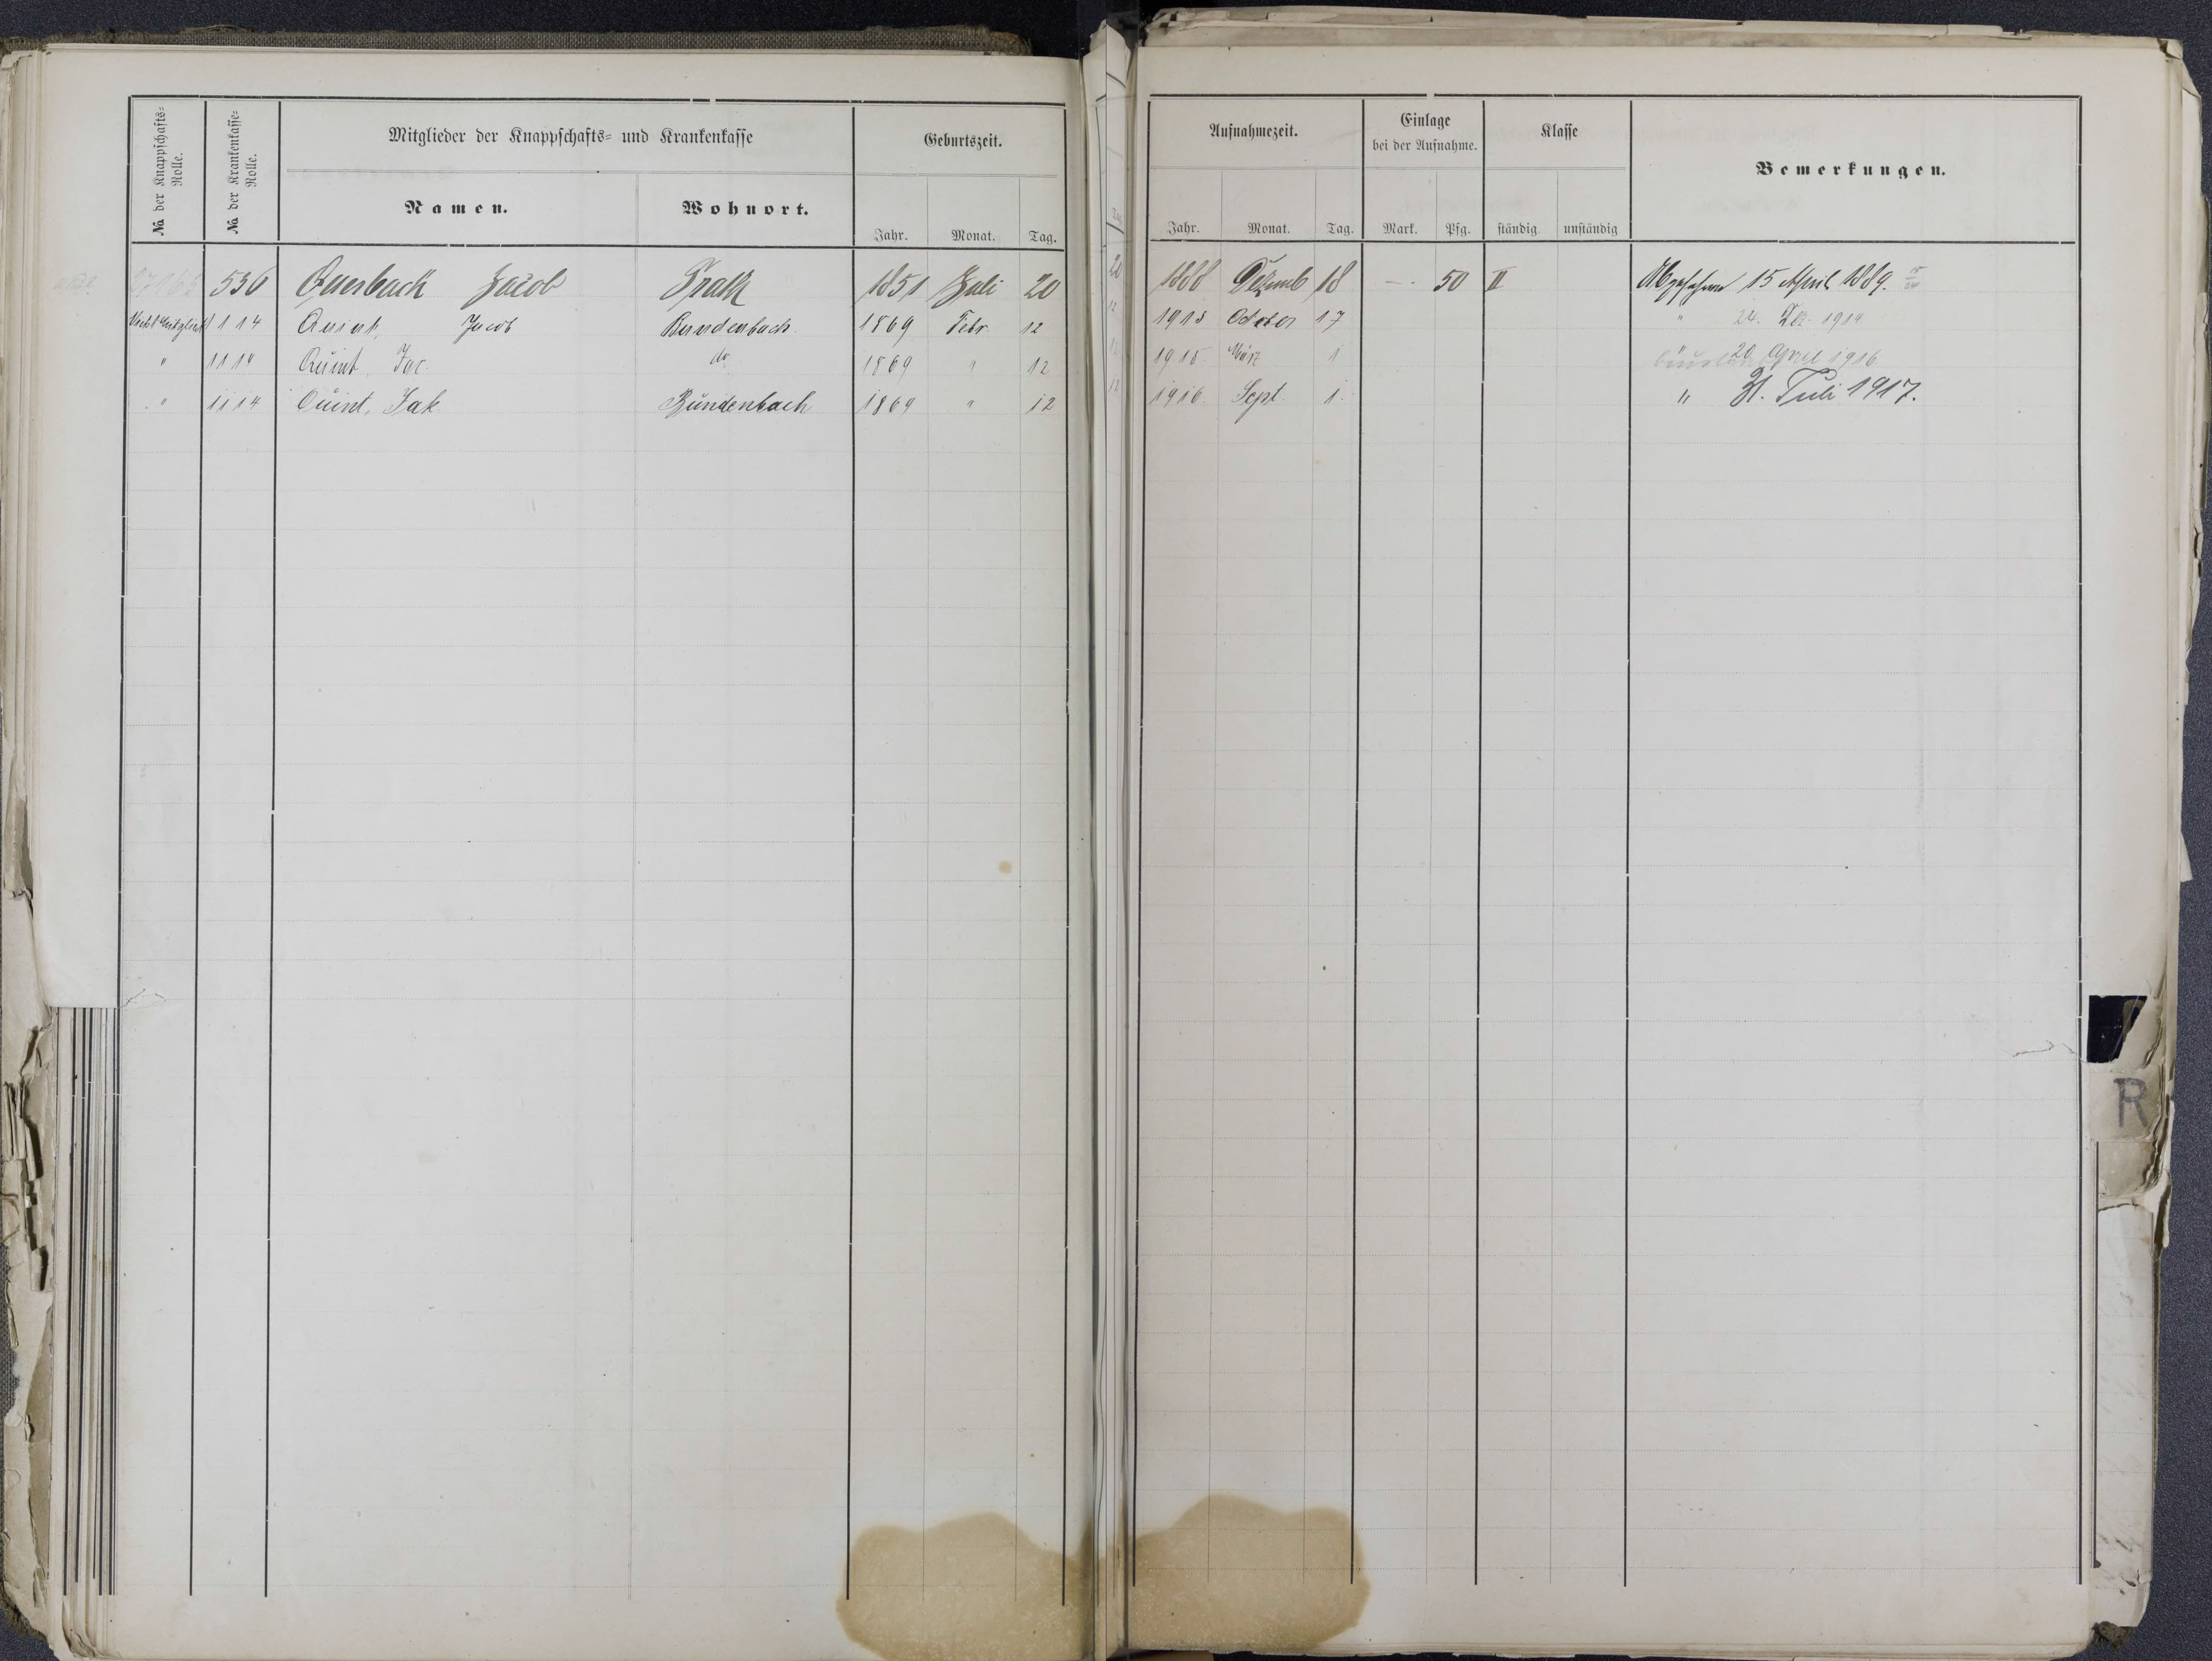 Mitglieder der Knappschafts- und Krankenkasse Geburtszeit. Aufnahmezeit. Einlage bei der Aufnahme. Klasse Bemerkungen.
№ der Knappschafts-Rolle. № der Krankenkasse-Rolle. Namen. Wohnort. Jahr. Monat. Tag. Jahr. Monat. Tag. Mark. Pfg. ständig unständig
536 Quesbach Jacob 1851 Juli 20 1888 Dezemb 18 — 50 II Abgefahren 15 April 1889.
1114 Quint, Jacob Bundenbach 1869 Febr. 12 1913 October 17 " 24. Dez. 1914
" 1114 Quint Jac. do 1869 " 12 1915 März 1 " 20. April 1916
" 1114 Quint, Jak. Bundenbach 1869 " 12 1916 Sept. 1. " 31. Juli 1917.
R